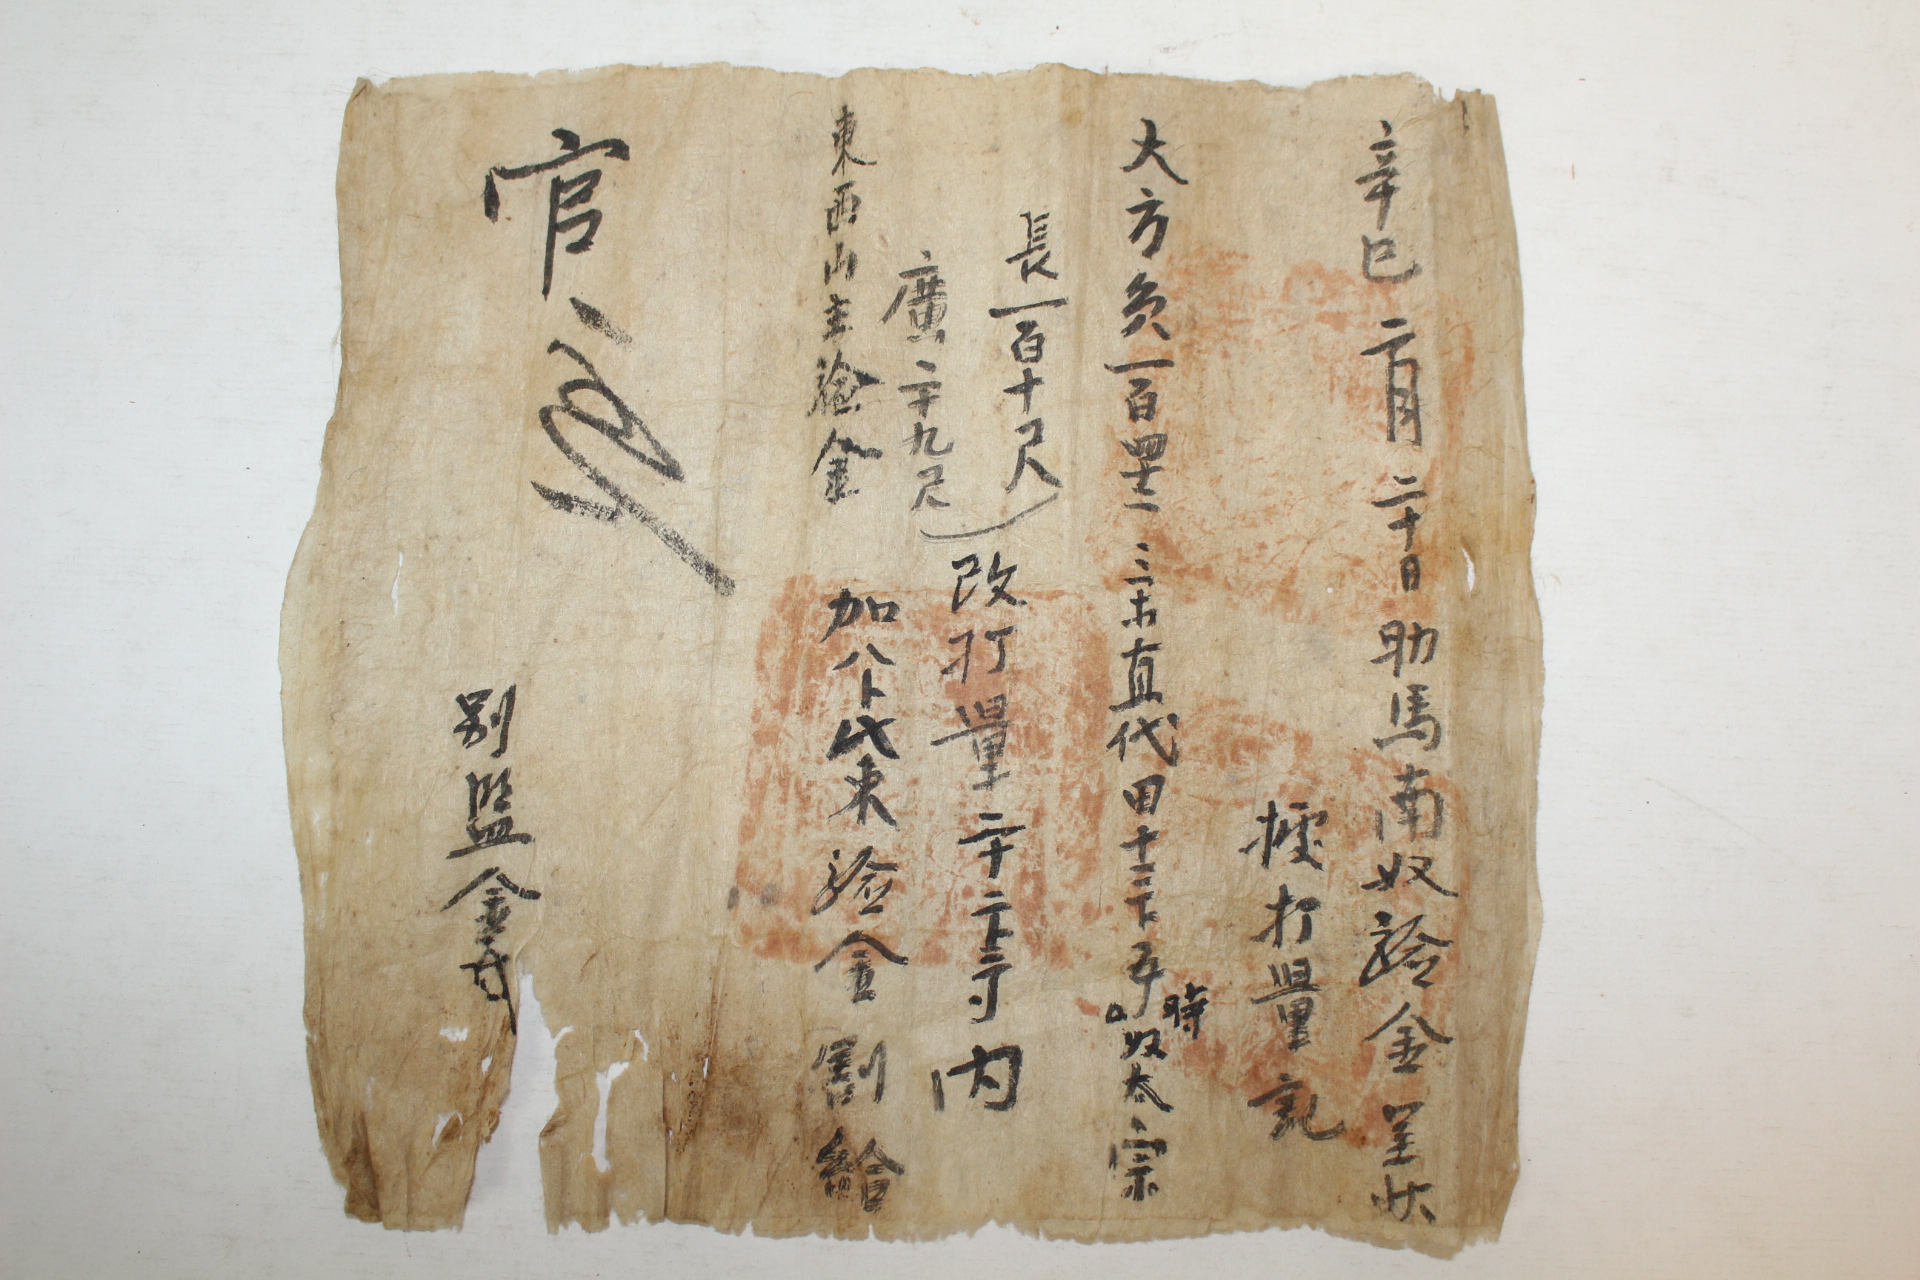 辛巳二月二十日助馬南奴验金呈狀
據打量記
大方負一百四十二 三宋直代田十三卜五
時
奴太宗
長一百十尺
廣二十九尺
改打量二十二卜三寸內
東西山主验金
加八卜代東验金割給
官
別監金